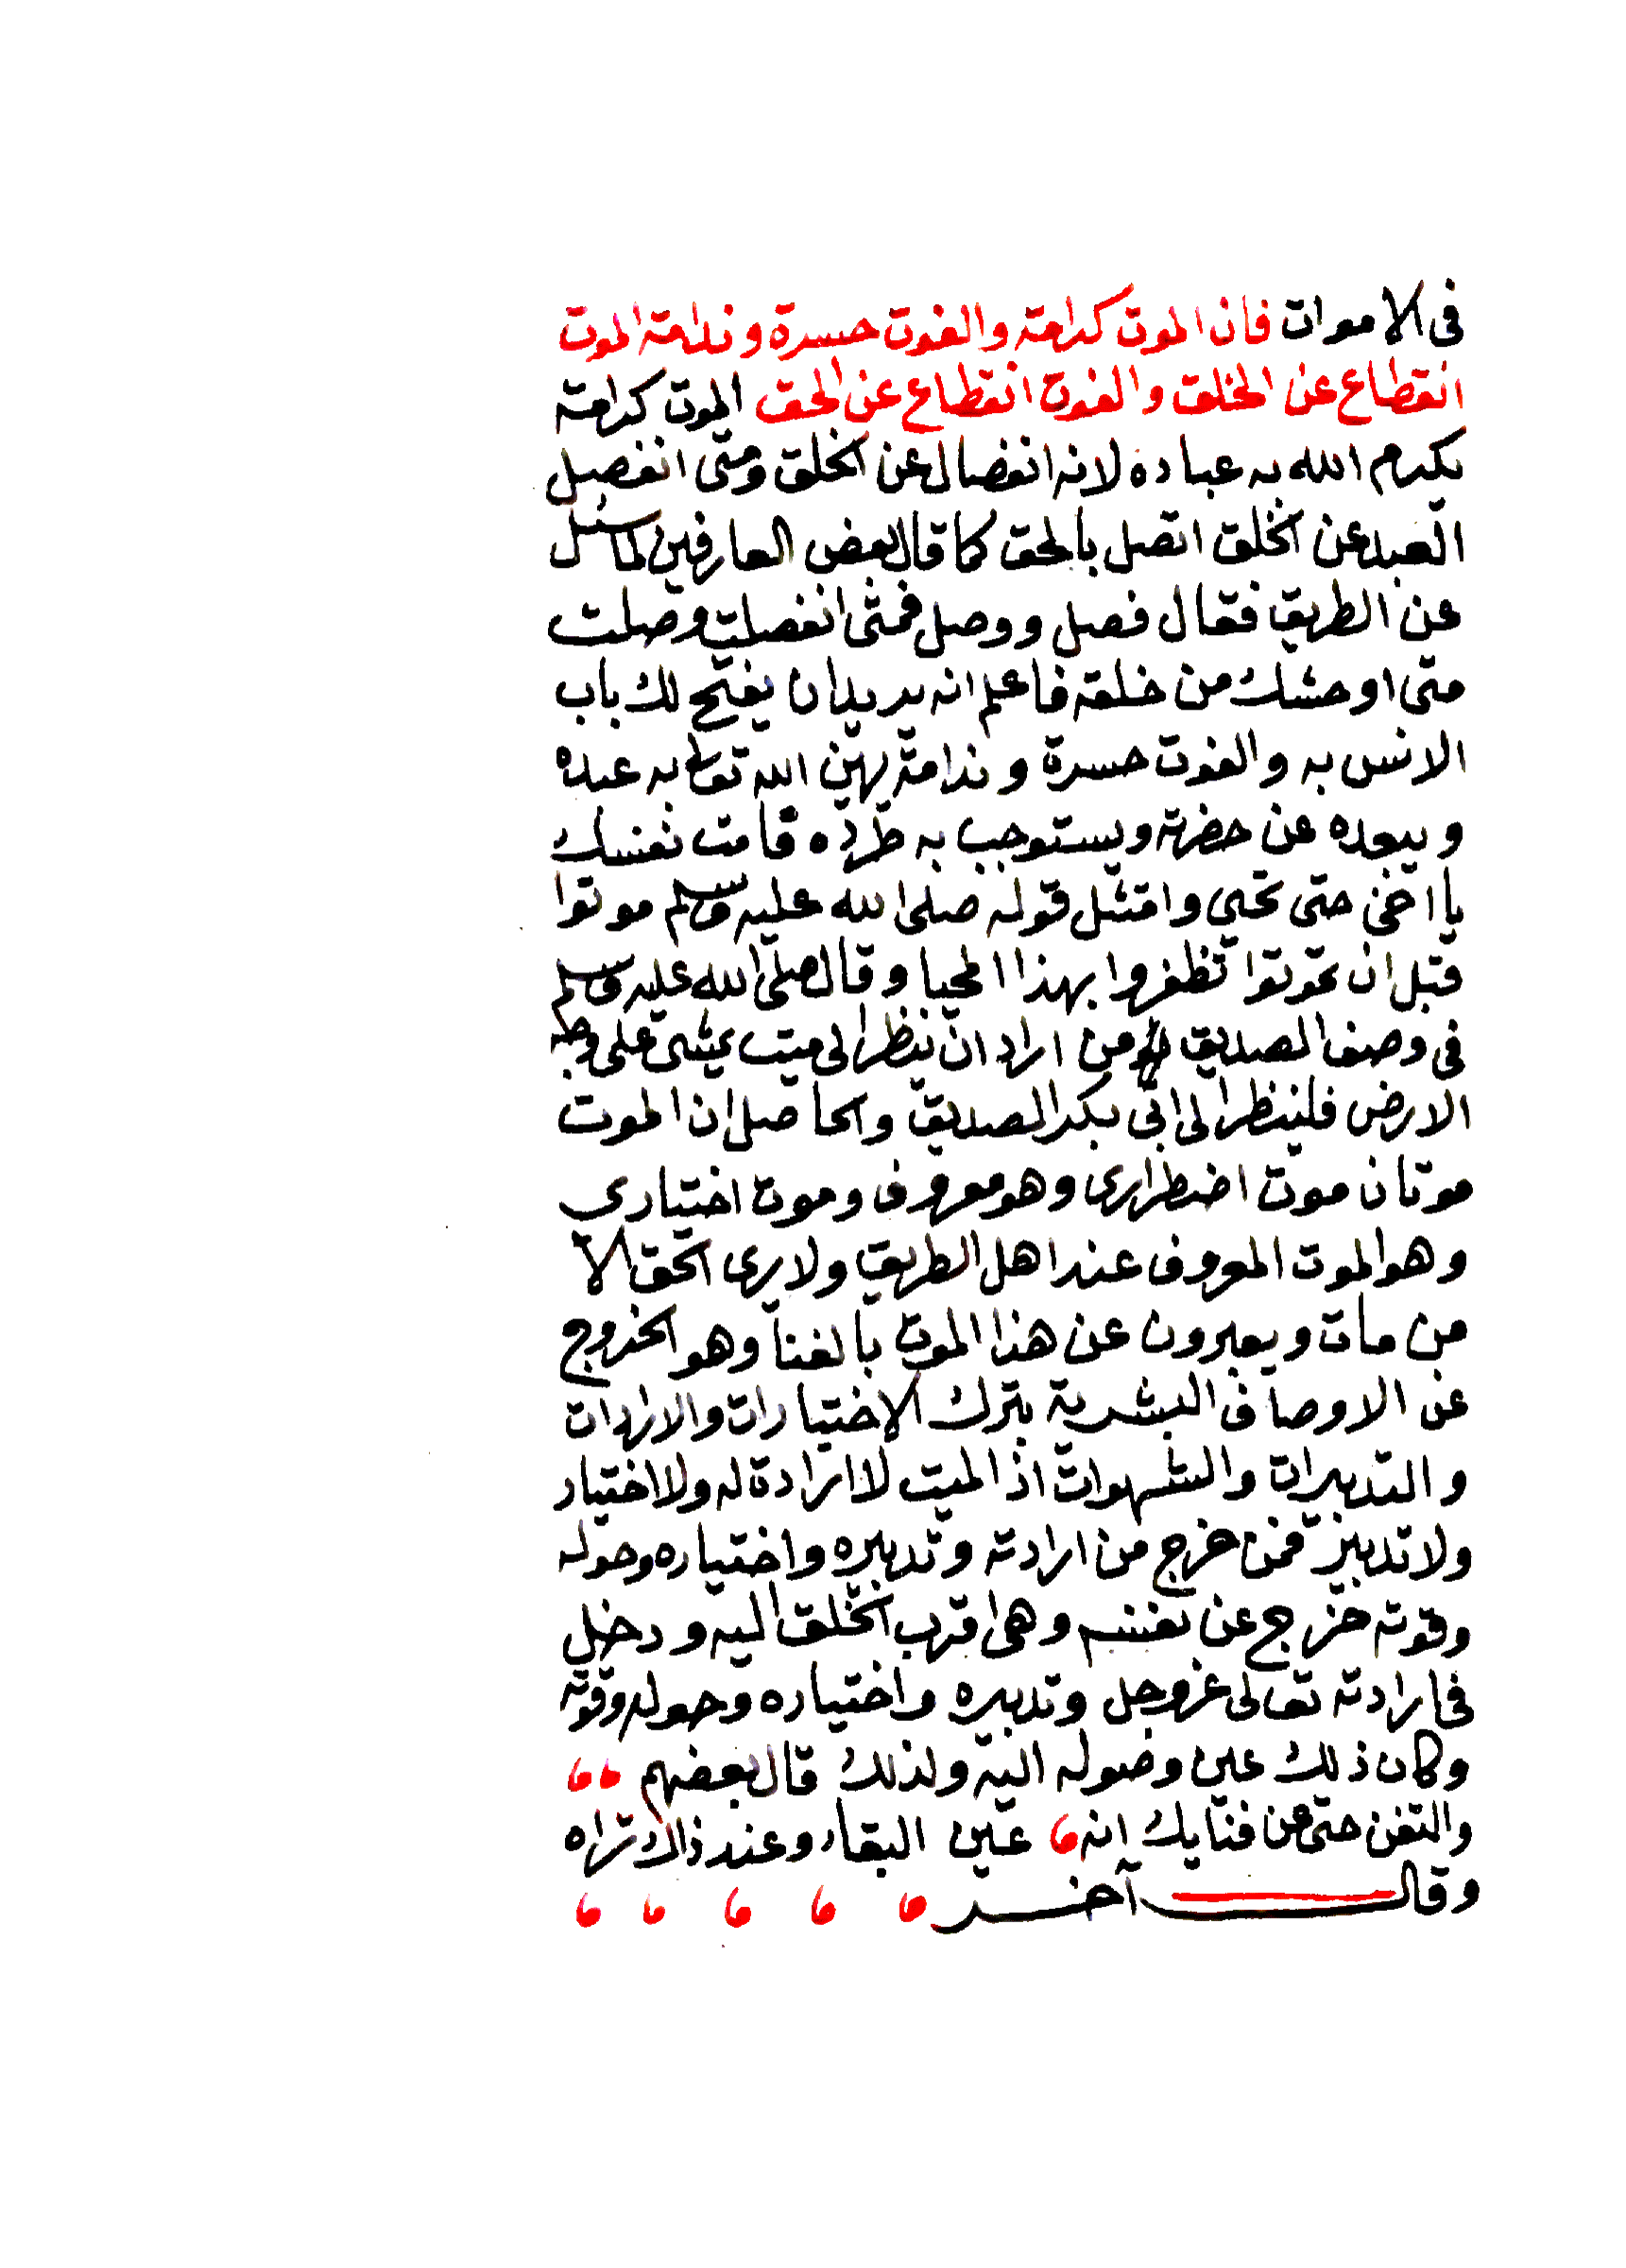 فى الاموات فان الموت كرامة والفوت حسرة وندامة الموت
انقطاع عن الخلق والفوت انقطاع عن الحق الموت كرامة
يكرم الله به عباده لانه انفصال عن الخلق ومتى انفصل
العبد عن الخلق اتصل بالحق كما قال بعض العارفين لما سئل
عن الطريق فقال فصل ووصل فمتى انفصلت وصلت
متى اوحشك من خلقه فاعلم انه يريد ان يفتح لك باب
الانس به والفوت حسرة وندامة يهين الله تعالى به عبده
ويبعده عن حضرته ويستوجب به طرده فامت نفسك
يا اخى حتى تحيى وامتثل قوله صلى الله عليه وسلم موتوا
قبل ان تموتوا تظفروا بهذا المحيا وقال صلى الله عليه وسلم
فى وصف الصديق من اراد ان ينظر الى ميت يمشى على وجه
الارض فلينظر الى ابى بكر الصديق والحاصل ان الموت
موتان موت اضطرارى وهو معروف وموت اختيارى
وهو الموت المعروف عند اهل الطريق ولا يرى الحق الا
من مات ويعبرون عن هذا الموت بالفنا وهو الخروج
عن الاوصاف البشرية بترك الاختيارات والارادات
والتدبيرات والشهوات اذ الميت لا ارادة له ولا اختيار
ولا تدبير فمن خرج من ارادته وتدبيره واختياره وحوله
وقوته خرج عن نفسه وهى اقرب الخلق اليه ودخل
فى ارادته تعالى عز وجل وتدبيره واختياره وحوله وقوته
وكان ذلك عين وصوله اليه ولذلك قال بعضهم
والتفن حتى عن فنايك انه عين البقاء وعند ذاك تراه
وقال آخر